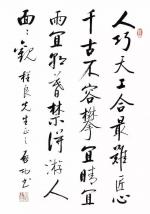 人巧天工合最難匠心
千古不容攀宜晴宜
雨宜朝暮禁得游人
面〻觀 桂良先生正之 启功书